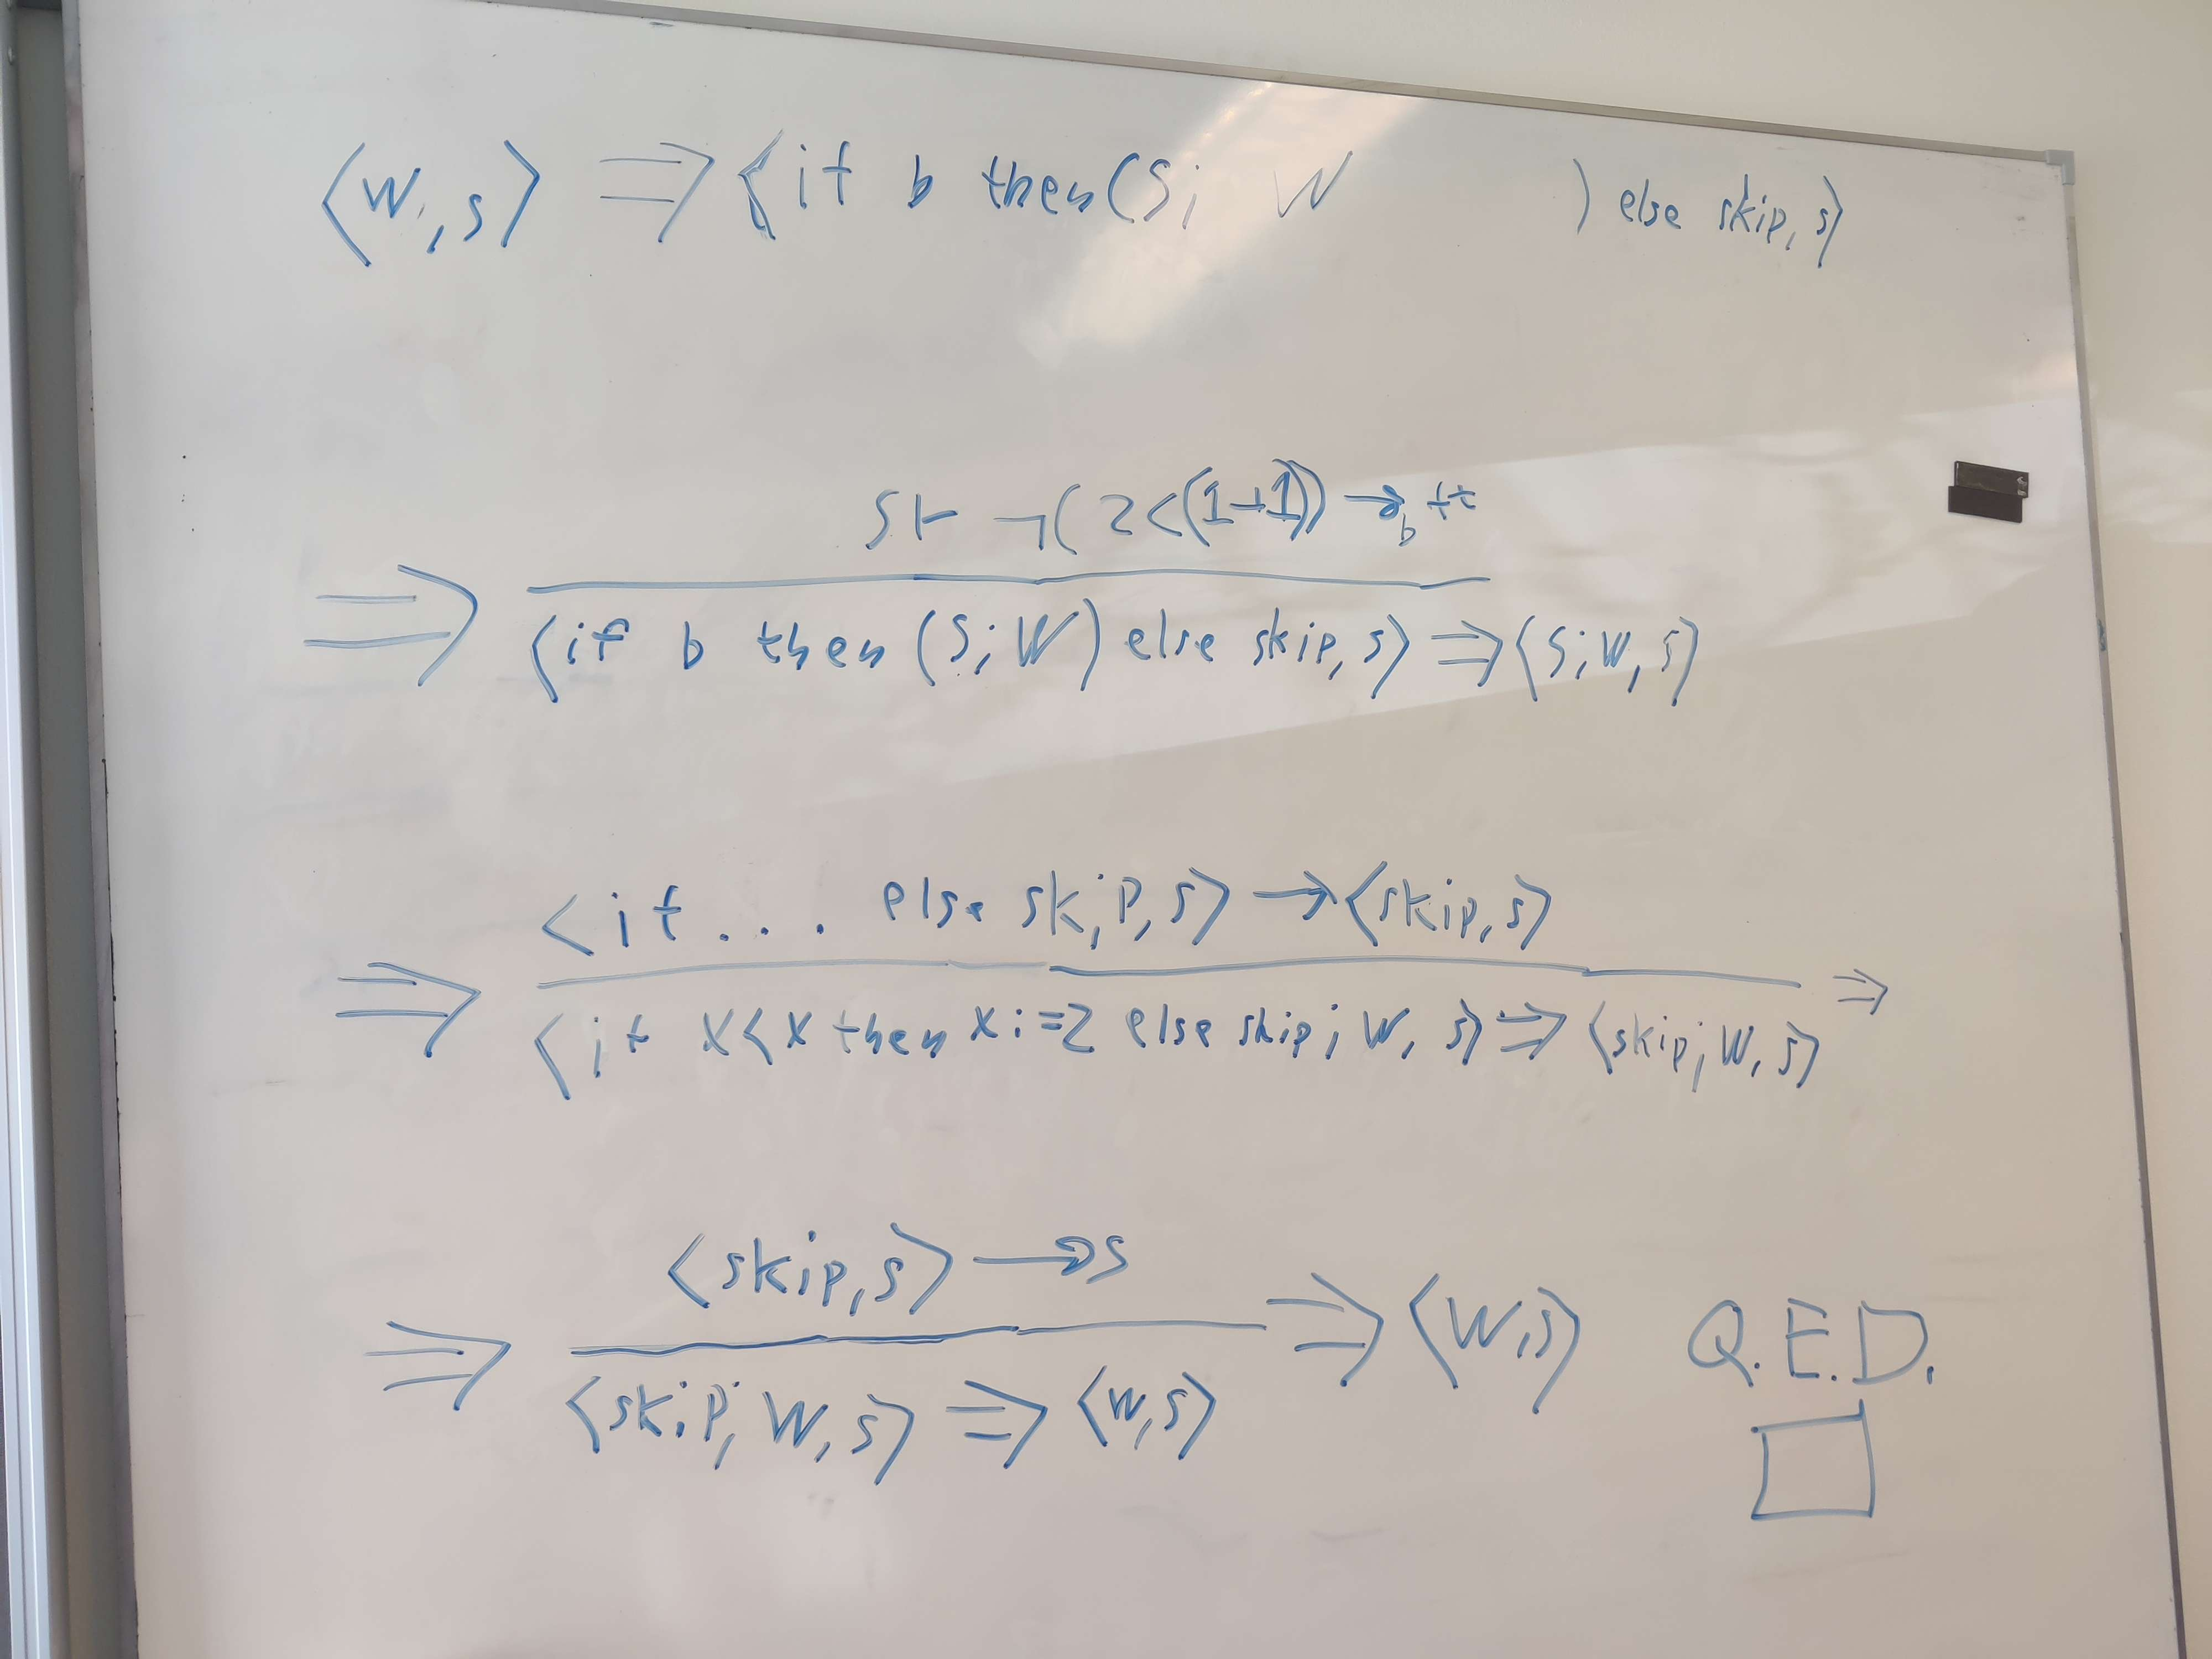 ⟨W, s⟩ ⇒ ⟨if b then (S; W ) else skip, s⟩
s ⊢ ¬(2<(1+1)) →b tt
⇒ ⟨if b then (S; W) else skip, s⟩ ⇒ ⟨S; W, s⟩
<if... else skip, s⟩ → ⟨skip, s⟩
⇒ ⟨if x<x then x:=2 else skip; W, s⟩ ⇒ ⟨skip; W, s⟩ ⇒
⟨skip, s⟩ → s
⇒ ⟨skip; W, s⟩ ⇒ ⟨W, s⟩ ⇒ ⟨W, s⟩ Q.E.D.
□